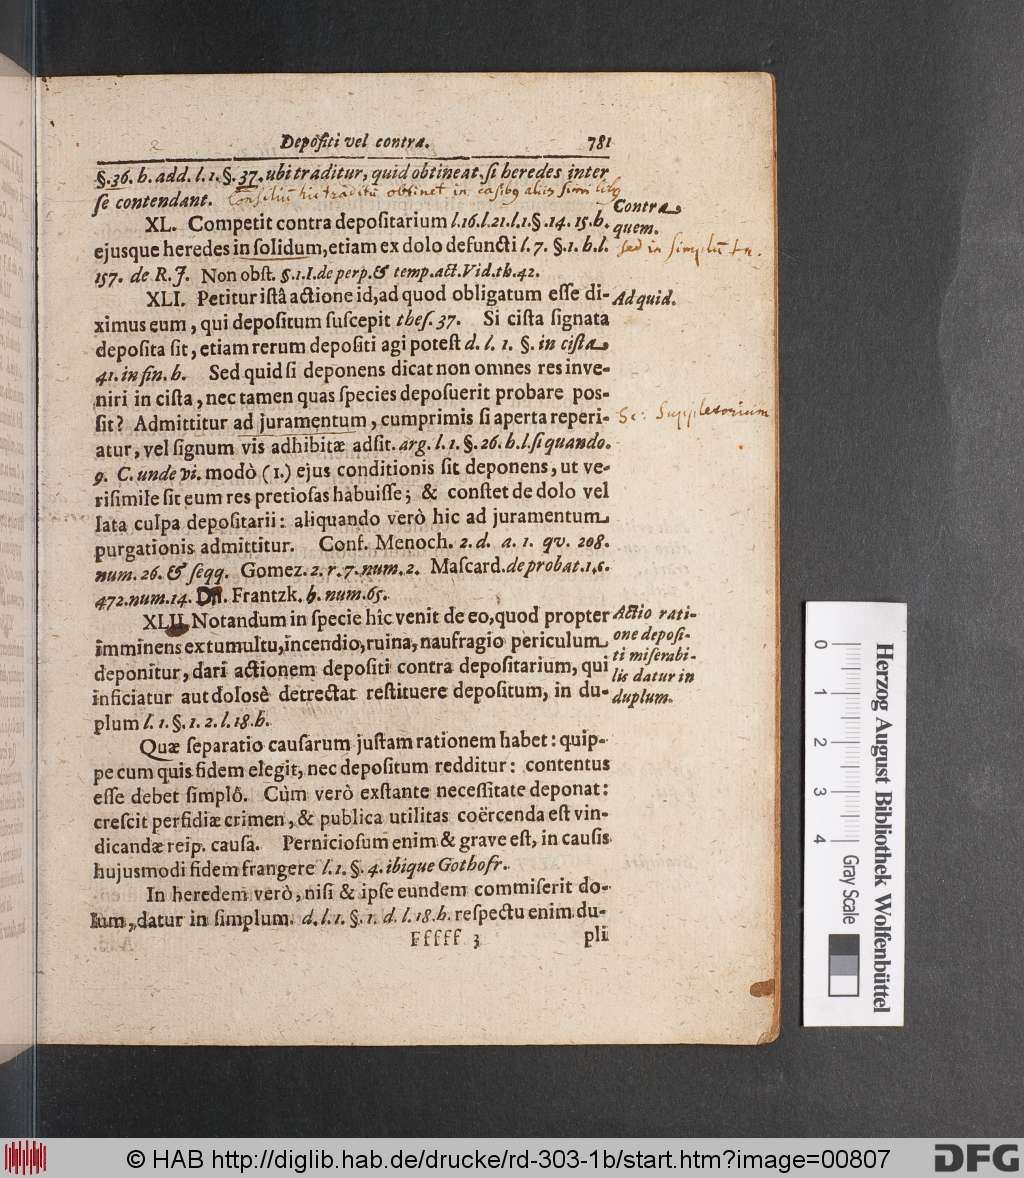 Depoſiti vel contra. 781
§.36. h. add. l.1. §. 37. ubi traditur, quid obtineat ſi heredes inter
ſe contendant. Conſiliũ hic traditũ obtinet in caſibꝯ aliis
XL. Competit contra depoſitarium l.16.l.21.l.1.§.14. 15.h.
Contra
quem.
ejusque heredes in ſolidum, etiam ex dolo defuncti l. 7. §.1. h. l.
sed in simplũ
157. de R. J. Non obſt. §.1.I.de perp.& temp.act.Vid.th.42.
XLI. Petitur iſtâ actione id, ad quod obligatum eſſe di-
Ad quid.
ximus eum, qui depoſitum ſuſcepit theſ. 37. Si ciſta ſignata
depoſita ſit, etiam rerum depoſiti agi poteſt d. l. 1. §. in ciſta
41. in fin. h. Sed quid ſi deponens dicat non omnes res inve-
niri in ciſta, nec tamen quas ſpecies depoſuerit probare poſ-
ſit? Admittitur ad juramentum, cumprimis ſi aperta reperi-
Sc: Suppletorium
atur, vel ſignum vis adhibitæ adſit. arg. l. 1. §. 26. h. l. ſi quando.
9. C. unde vi. modò (1.) ejus conditionis ſit deponens, ut ve-
riſimile ſit eum res pretioſas habuiſſe; & conſtet de dolo vel
lata culpa depoſitarii: aliquando verò hic ad juramentum
purgationis admittitur. Conf. Menoch. 2. d. a. 1. qv. 208.
num. 26. & ſeqq. Gomez. 2. r. 7. num. 2. Maſcard. de probat. 1. c.
472. num. 14. Dn. Frantzk. h. num. 65.
XLII. Notandum in ſpecie hîc venit de eo, quod propter
imminens ex tumultu, incendio, ruina, naufragio periculum
deponitur, dari actionem depoſiti contra depoſitarium, qui
inficiatur aut dolosè detrectat reſtituere depoſitum, in du-
plum l. 1. §. 1. 2. l. 18. h.
Actio rati-
one depoſi-
ti miſerabi-
lis datur in
duplum.
Quæ ſeparatio cauſarum juſtam rationem habet: quip-
pe cum quis fidem elegit, nec depoſitum redditur: contentus
eſſe debet ſimplô. Cùm verò exſtante neceſſitate deponat:
creſcit perfidiæ crimen, & publica utilitas coërcenda eſt vin-
dicandæ reip. cauſa. Pernicioſum enim & grave eſt, in cauſis
hujusmodi fidem frangere l. 1. §. 4. ibique Gothofr.
In heredem verò, niſi & ipſe eundem commiſerit do-
lum, datur in ſimplum. d. l. 1. §. 1. d. l. 18. h. reſpectu enim du-
Fffff 3 pli
0
1
2
3
4
Gray Scale
Herzog August Bibliothek Wolfenbüttel
© HAB http://diglib.hab.de/drucke/rd-303-1b/start.htm?image=00807
DFG